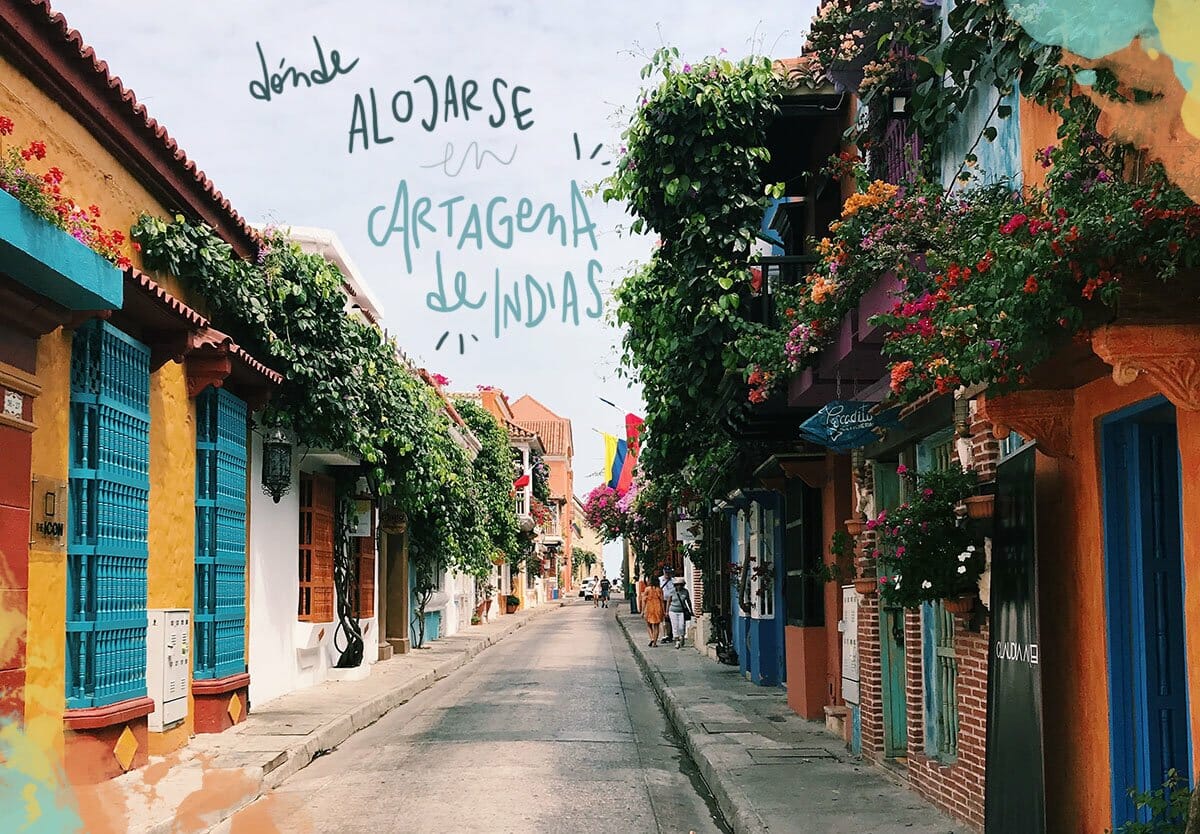 dónde
ALOJARSE
en
CARTAGENA
de INDIAS
THE ICON